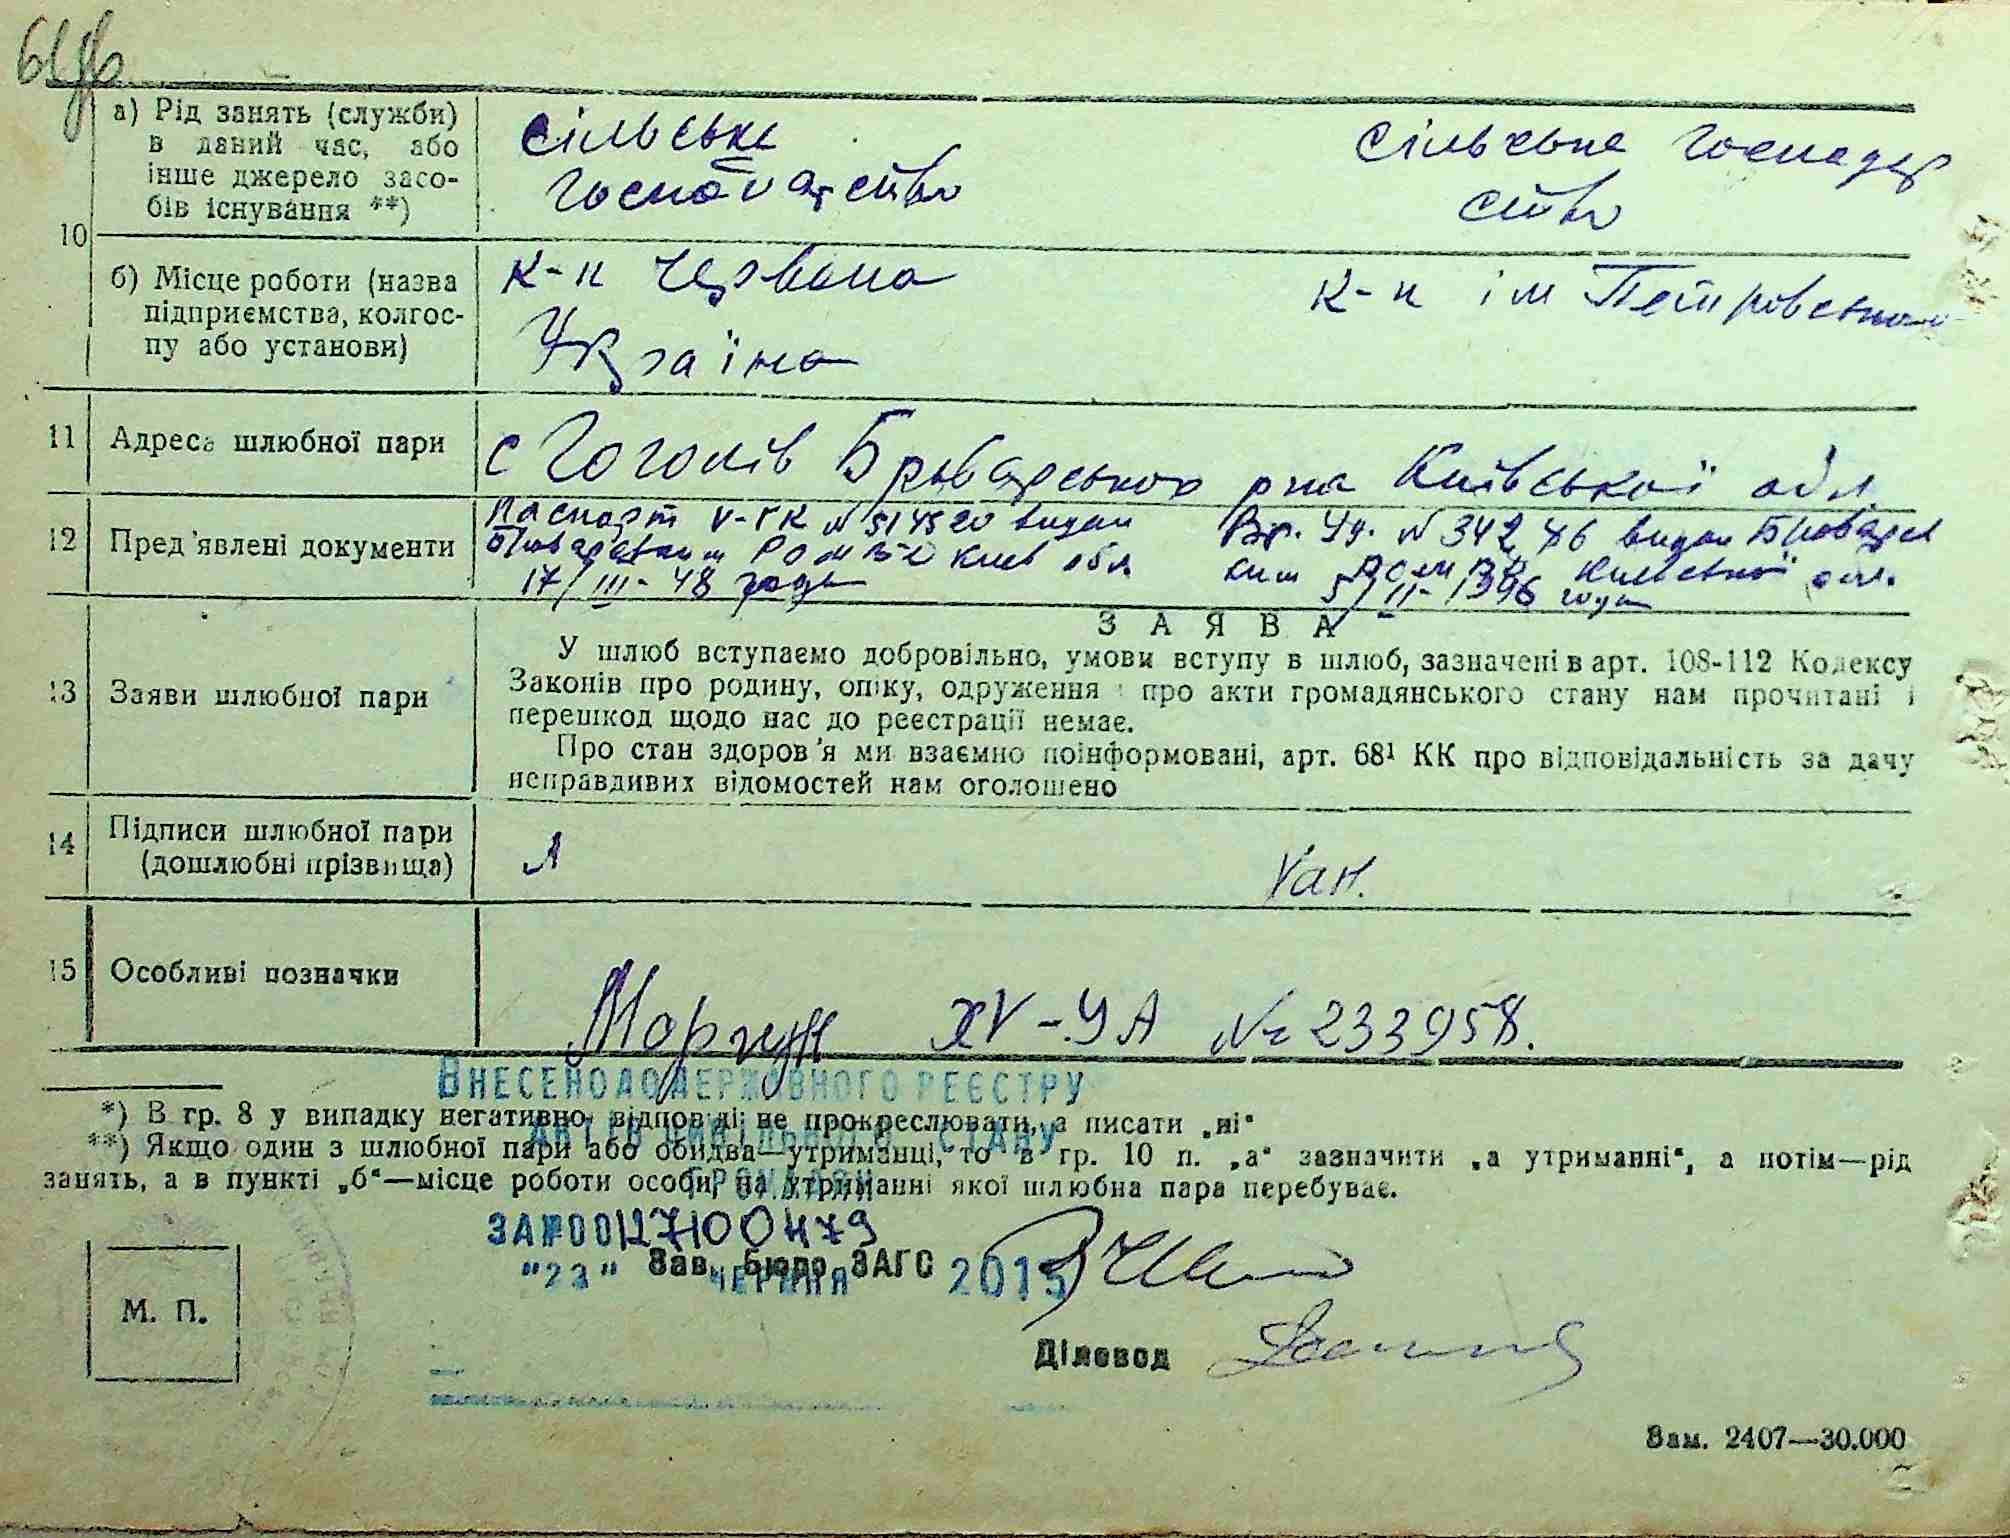 а) Рід занять (служби)
в даний час, або
інше джерело засо-
бів існування **)
сільське
господарство
сільське господар
ство
10
б) Місце роботи (назва
підприємства, колгос-
пу або установи)
к-п Червона
Україна
к-п ім Петровського
11
Адреса шлюбної пари
с Гоголів Броварського р-на Київської обл
12
Пред'явлені документи
Паспорт V-ГК № 514520 видан
РОМВД Киев обл
17/III-48 года
Вр. Уд. № 342 видан Бровар
ким РОМВД Київської обл.
5/II-1946 года
13
Заяви шлюбної пари
З А Я В А
У шлюб вступаємо добровільно, умови вступу в шлюб, зазначені в арт. 108-112 Кодексу
Законів про родину, опіку, одруження і про акти громадянського стану нам прочитані і
перешкод щодо нас до реєстрації немає.
Про стан здоров'я ми взаємно поінформовані, арт. 68¹ КК про відповідальність за дачу
неправдивих відомостей нам оголошено
14
Підписи шлюбної пари
(дошлюбні прізвища)
15
Особливі позначки
XV-УА № 233958.
ВНЕСЕНО ДО ДЕРЖАВНОГО РЕЄСТРУ
АКТІВ ЦИВІЛЬНОГО СТАНУ
ГРОМАДЯН
*) В гр. 8 у випадку негативно відповіді не прокреслювати, а писати „ні“
**) Якщо один з шлюбної пари або обидва—утриманці, то в гр. 10 п. „а“ зазначити „а утриманні“, а потім—рід
занять, а в пункті „б“—місце роботи особи, на утриманні якої шлюбна пара перебуває.
ЗА №00127100479
"23" ЧЕРВНЯ 2015
Зав. Бюро ЗАГС
М. П.
Діловод
Зам. 2407—30.000